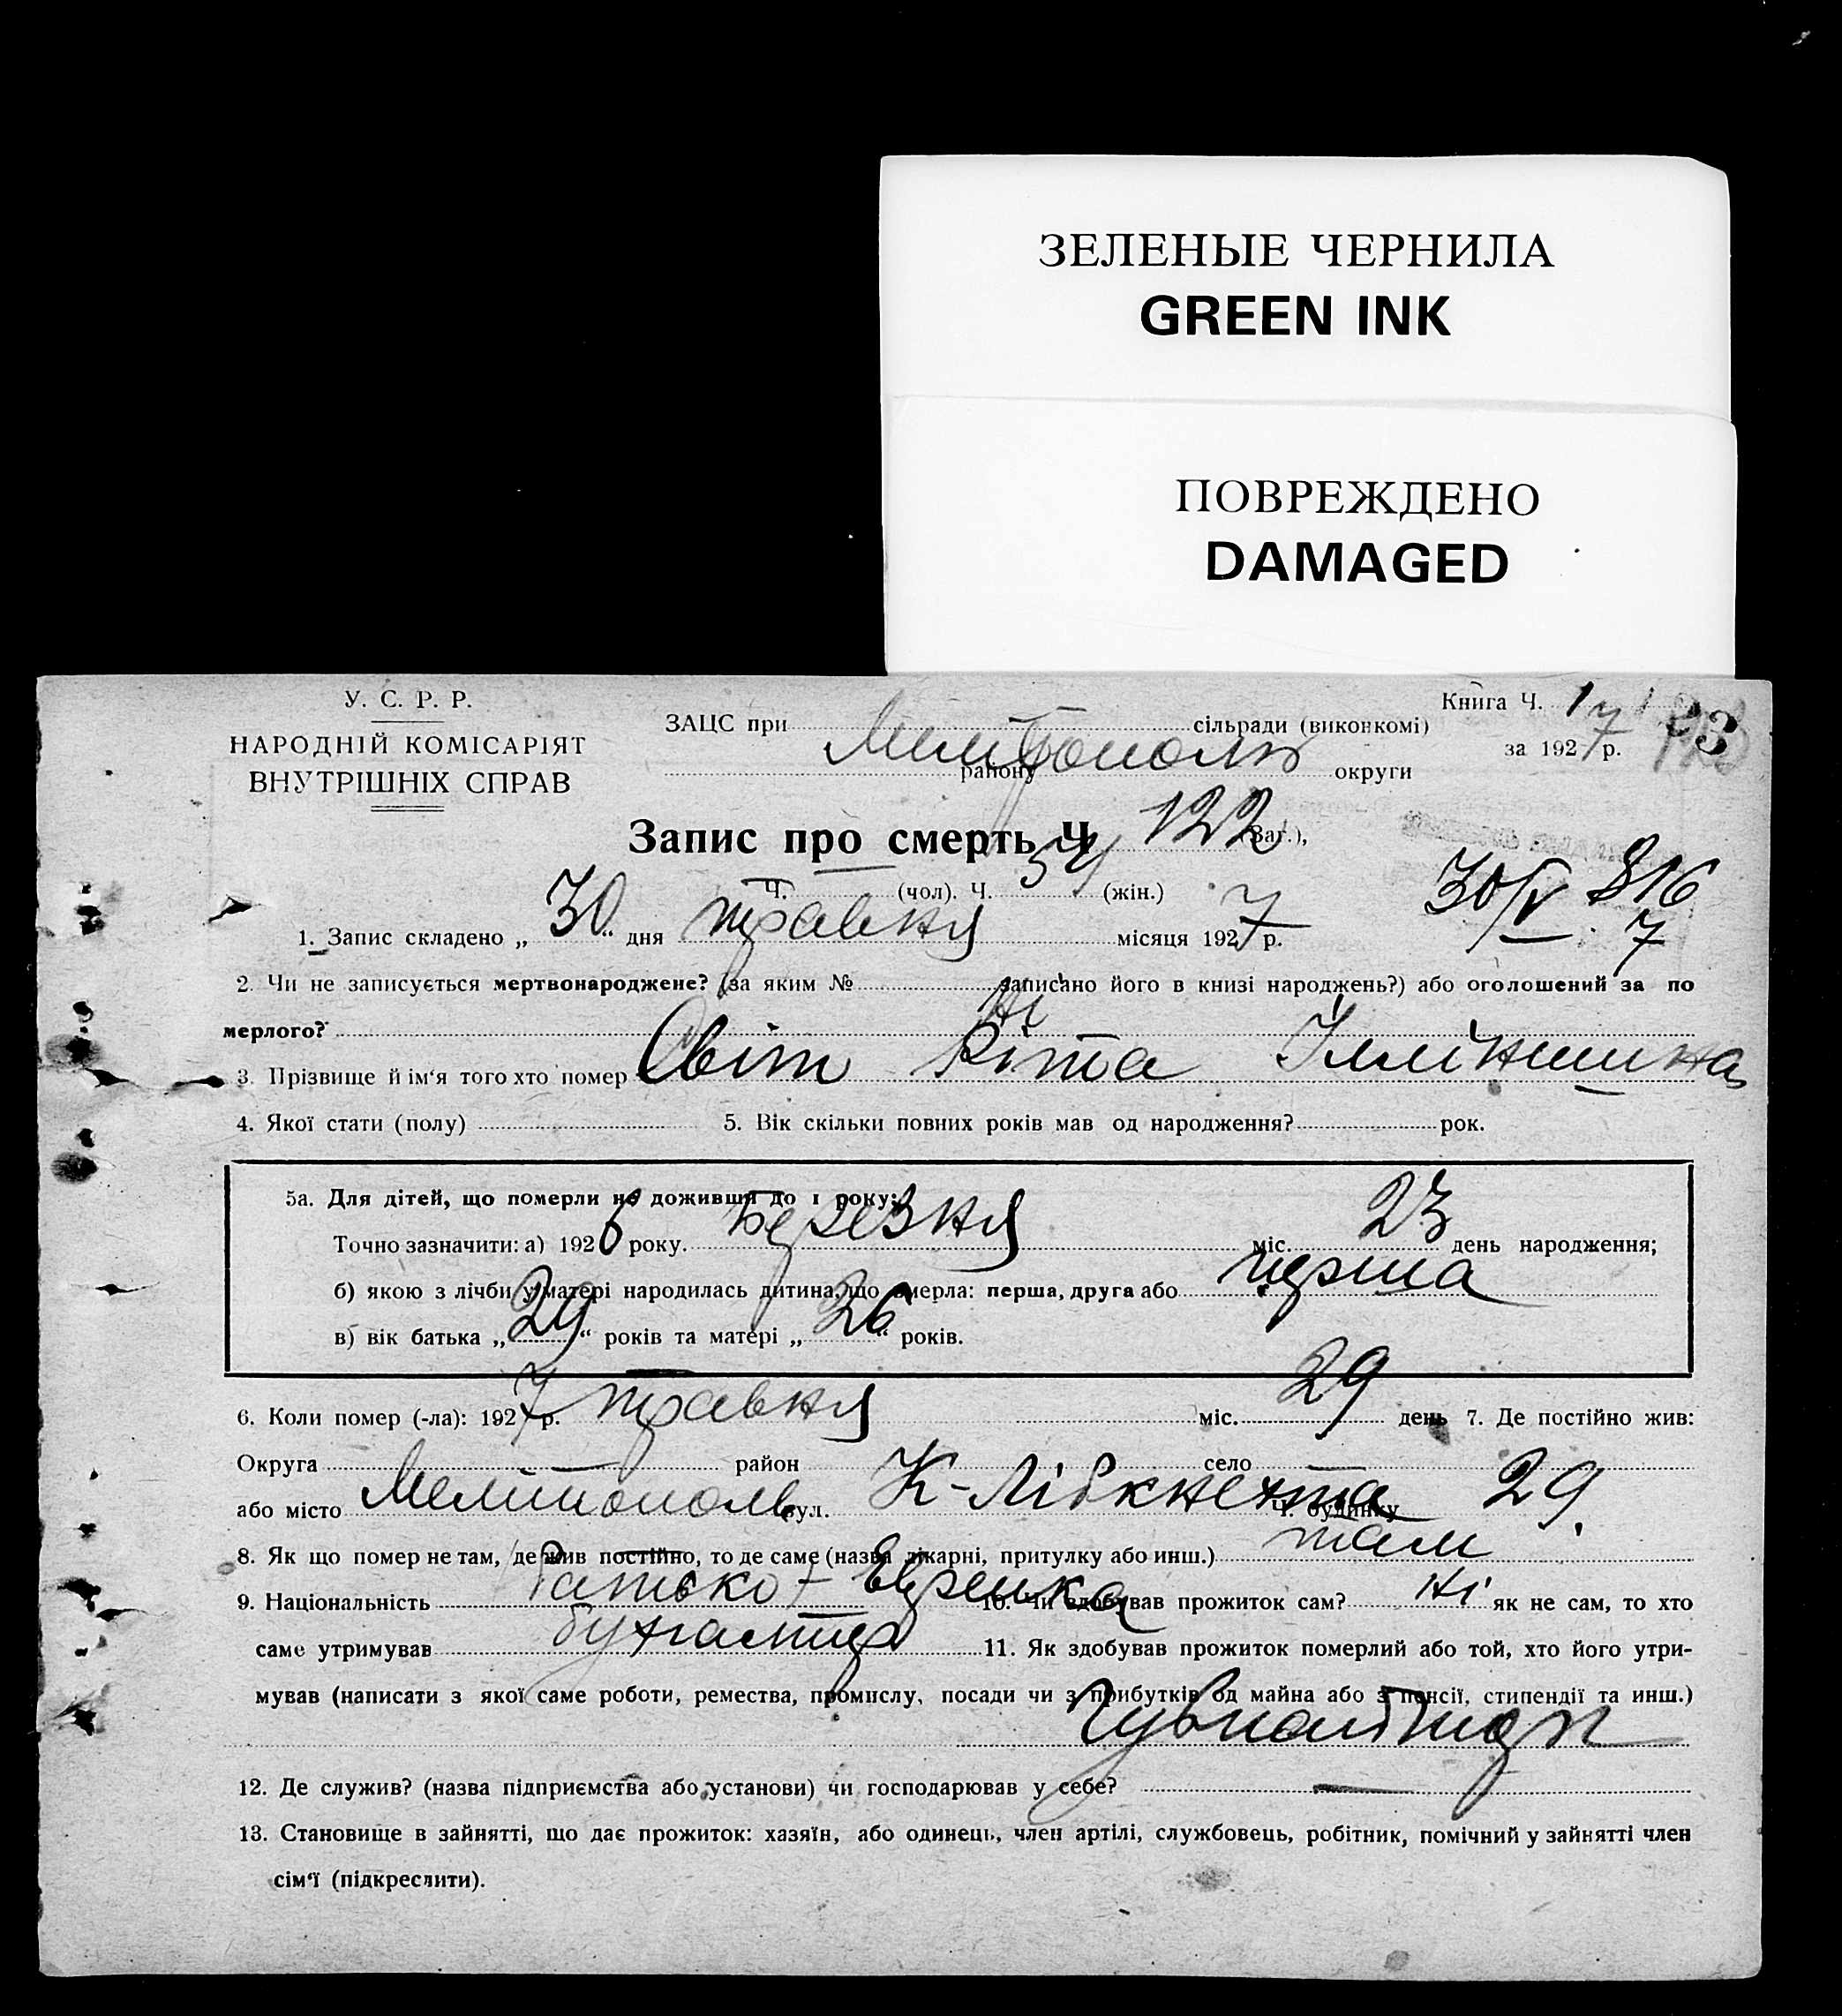 ЗЕЛЕНЫЕ ЧЕРНИЛА
GREEN INK
ПОВРЕЖДЕНО
DAMAGED
У. С. Р. Р.
НАРОДНІЙ КОМІСАРІЯТ
ВНУТРІШНІХ СПРАВ
Книга Ч. 1
за 1927 р.
ЗАЦС при сільради (виконкомі)
Мелітополь
району округи
Запис про смерть Ч. 122 (Заг.),
Ч. (чол). Ч. 54 (жін.)
30/V 816
7
1. Запис складено „30“ дня травня місяця 1927 р.
2. Чи не записується мертвонароджене? (за яким № записано його в книзі народжень?) або оголошений за по
мерлого? Ні
3. Прізвище й ім'я того хто помер Світ Ріта
4. Якої стати (полу) 5. Вік скільки повних років мав од народження? рок.
5а. Для дітей, що померли не доживши до 1 року:
Точно зазначити: а) 1926 року. Березня міс. 23 день народження;
б) якою з лічби у матері народилась дитина, що вмерла: перша, друга або перша
в) вік батька „29“ років та матері „26“ років.
6. Коли помер (-ла): 1927 р. травня міс. 29 день 7. Де постійно жив:
Округа район село
або місто Мелітополь вул. К-Лібкнехта Ч. будинку 29
8. Як що помер не там, де жив постійно, то де саме (назва лікарні, притулку або инш.) там
9. Національність Еврейка 10. Чи здобував прожиток сам? Ні як не сам, то хто
саме утримував батько - бухгалтер 11. Як здобував прожиток померлий або той, хто його утри-
мував (написати з якої саме роботи, ремества, промислу, посади чи з прибутків од майна або з пенсії, стипендії та инш.)
12. Де служив? (назва підприємства або установи) чи господарював у себе? —
13. Становище в зайнятті, що дає прожиток: хазяїн, або одинець, член артілі, службовець, робітник, помічний у зайнятті член
сім'ї (підкреслити).